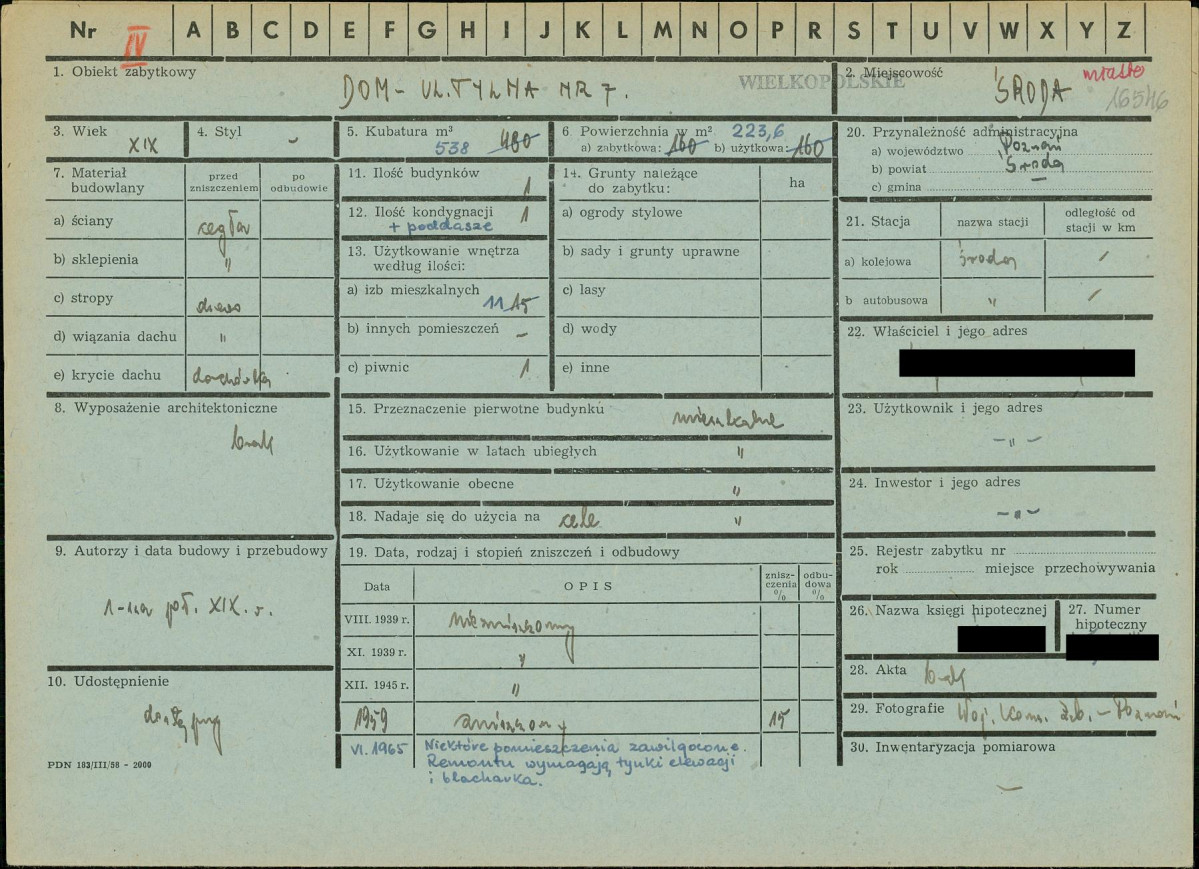 Nr IV A B C D E F G H I J K L M N O P R S T U V W X Y Z
1. Obiekt zabytkowy
DOM - UL. TYLNA NR 7.
WIELKOPOLSKIE
2. Miejscowość
ŚRODA
miasto
16546
3. Wiek
XIX
4. Styl
-
5. Kubatura m³
538 480
6. Powierzchnia w m² 223,6
a) zabytkowa: 160 b) użytkowa: 160
20. Przynależność administracyjna
a) województwo Poznań
b) powiat Środa
c) gmina -
7. Materiał budowlany
przed zniszczeniem
po odbudowie
a) ściany cegła
b) sklepienia "
c) stropy drewno
d) wiązania dachu "
e) krycie dachu dachówka
11. Ilość budynków 1
12. Ilość kondygnacji 1
+ poddasze
13. Użytkowanie wnętrza
według ilości:
a) izb mieszkalnych 11 15
b) innych pomieszczeń -
c) piwnic 1
14. Grunty należące
do zabytku:
ha
a) ogrody stylowe
b) sady i grunty uprawne
c) lasy
d) wody
e) inne
21. Stacja
nazwa stacji
odległość od
stacji w km
a) kolejowa Środa /
b autobusowa " /
22. Właściciel i jego adres
8. Wyposażenie architektoniczne
brak
15. Przeznaczenie pierwotne budynku mieszkalne
16. Użytkowanie w latach ubiegłych "
17. Użytkowanie obecne "
18. Nadaje się do użycia na cele "
23. Użytkownik i jego adres
- " -
24. Inwestor i jego adres
- " -
9. Autorzy i data budowy i przebudowy
1-sza poł. XIX. w.
19. Data, rodzaj i stopień zniszczeń i odbudowy
Data
OPIS
znisz-
czenia
%
odbu-
dowa
%
VIII. 1939 r. niezniszczony
XI. 1939 r. "
XII. 1945 r. "
1959 zniszczony 15
VI. 1965 Niektóre pomieszczenia zawilgocone.
Remontu wymagają tynki elewacji
i blacharka.
25. Rejestr zabytku nr
rok miejsce przechowywania
26. Nazwa księgi hipotecznej
27. Numer
hipoteczny
28. Akta brak
29. Fotografie Woj. Kons. Zab. - Poznań
30. Inwentaryzacja pomiarowa
-
10. Udostępnienie
dostępny
PDN 183/III/58 - 2000